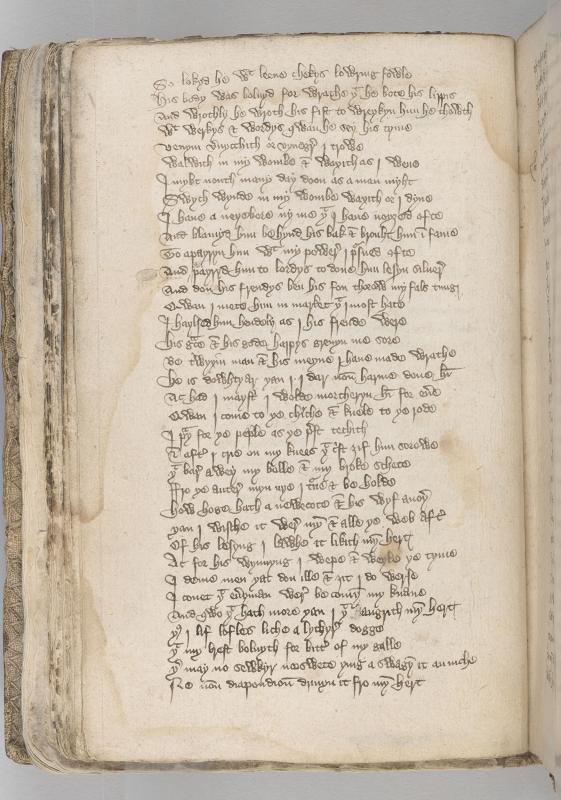 So lokyd he wt leene chekys lowring fowle
His body was bolnyd for wrathe yt he bote his lippis
And wrothly he wroth his fist to wreykyn hym he thowth
wt werkys & wordys qwan he sey his tyme
venym vernyschith or vyneger I trowe
walwith in my wombe & waxith as I wene
I myht nouth many day doon as a man myht
Swych wynde in my wombe waxith or I dyne
I haue a neysbore ny me yt I haue noyzed ofte
And blamyd hym behynd his bak & brouht hym in fame
To apayryn hym wt my power I pursued ofte
And payryd hym to lordys to done hym lesyn siluer
And don his frendys ben his fon thorow my fals tung
Qwan I mete him in market yt I most hate
I haylsed hym hendely as I his frende were
his gce & his gode happys greuyn me sore
Be twyyin man & his meyne I haue made wrathe
he is dowhtyar yan I I dar non harme done hym
Ac had I mayst I wolde mortheryn hym for euer
Qwan I come to ye chirche & knele to ye rode
I pray for ye peple as ye prest techith
& aftir I crie on my knees yt crist zif hym sorowe
yt bar a wey my bolle & my broke schete
Fro ye auter myn eye I turne & be holde
how hoge hath a newe cote & his wyf anoyer
yan I wische it were myn & alle ye web aftir
Of his lesyng I lawhe it likith myn hert
Ac for his wynnyng I wepe & weyle ye tyme
I deme men yat don ille & zit I do werse
I couet yt euery man were be comyn my knaue
And qwo yt hath more yan I yt angrith myn hert
yus I lif lofles liche a lythyr dogge
yt my brest bolnyth for bittir of my galle
yer may no sewkyr ne swete ying aswagyn it an unche
Ne non diapendion dryuyn it fro myn hert